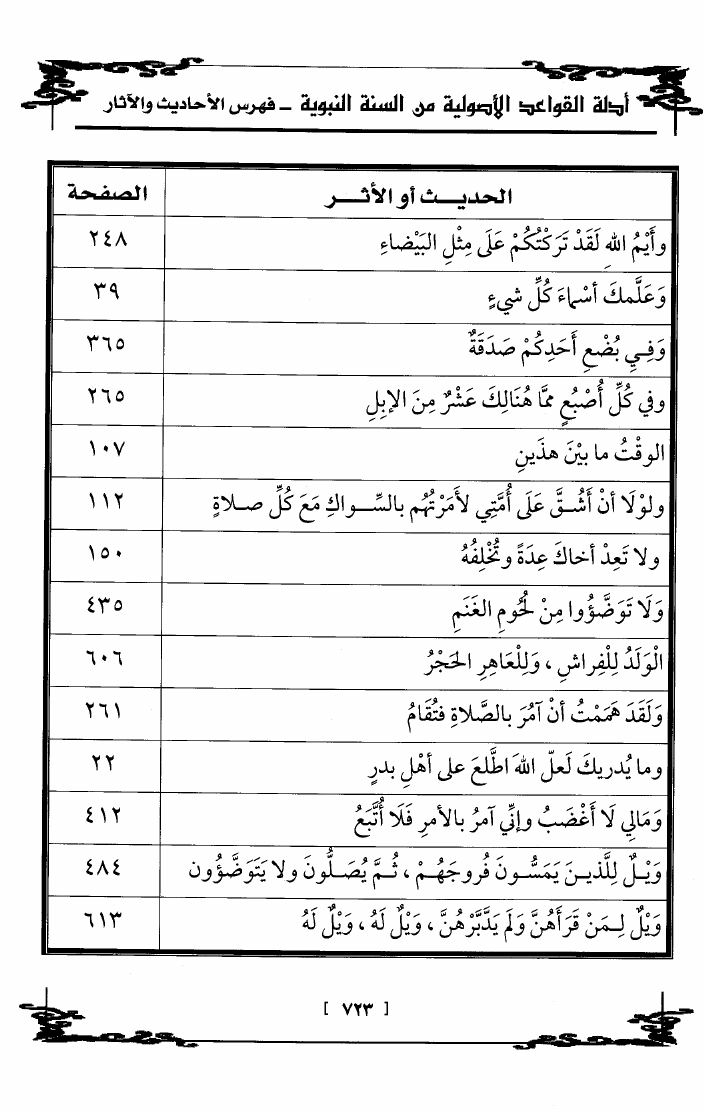 أدلة القواعد الأصولية من السنة النبوية ـ فهرس الأحاديث والآثار
الحديـــث أو الأثـــر الصفحة
وأَيْمُ اللهِ لَقَدْ تَرَكْتُكُمْ عَلَى مِثْلِ البَيْضاءِ ٢٤٨
وَعَلَّمكَ أسْماءَ كُلِّ شيءٍ ٣٩
وَفِي بُضْعِ أَحَدِكُمْ صَدَقَةٌ ٣٦٥
وفي كُلِّ أُصْبُعٍ ممَّا هُنَالِكَ عَشْرٌ مِنَ الإبِلِ ٢٦٥
الوقْتُ ما بيْنَ هذَينِ ١٠٧
ولوْلَا أنْ أَشُــقَّ عَلَى أُمَّتِي لأمَرْتُهُم بالسِّـــواكِ مَعَ كُلِّ صـلاةٍ ١١٢
ولا تَعِدْ أخاكَ عِدَةً وتُخْلِفُهُ ١٥٠
وَلَا تَوَضَّؤُوا مِنْ لُحُومِ الغَنَمِ ٤٣٥
الْوَلَدُ لِلْفِراشِ ، وَلِلْعَاهِرِ الحَجْرُ ٦٠٦
وَلَقَدَ هَمَمْتُ أنْ آمُرَ بالصَّلاةِ فتُقَامُ ٢٦١
وما يُدريكَ لَعلّ اللهَ اطَّلعَ على أهْلِ بدرٍ ٢٢
وَمَالِي لَا أَغْضَبُ وإنِّي آمرُ بالأمرِ فَلَا أُتَّبَعُ ٤١٢
وَيْــلٌ لِلَّذيــنَ يَمَسُّــونَ فُروجَهُــمْ ، ثُــمَّ يُصَــلُّونَ ولا يَتَوَضَّؤُون ٤٨٤
وَيْلٌ لِــمَنْ قَرَأَهُنَّ وَلَم يَدَّبَّرْهُنَّ ، وَيْلٌ لَهُ ، وَيْلٌ لَهُ ٦١٣
[ ٧٢٣ ]